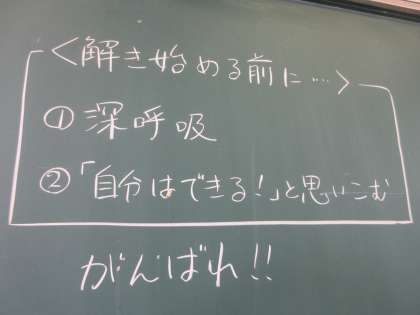 <解き始める前に…>
①深呼吸
②「自分はできる!」と思いこむ
がんばれ!!